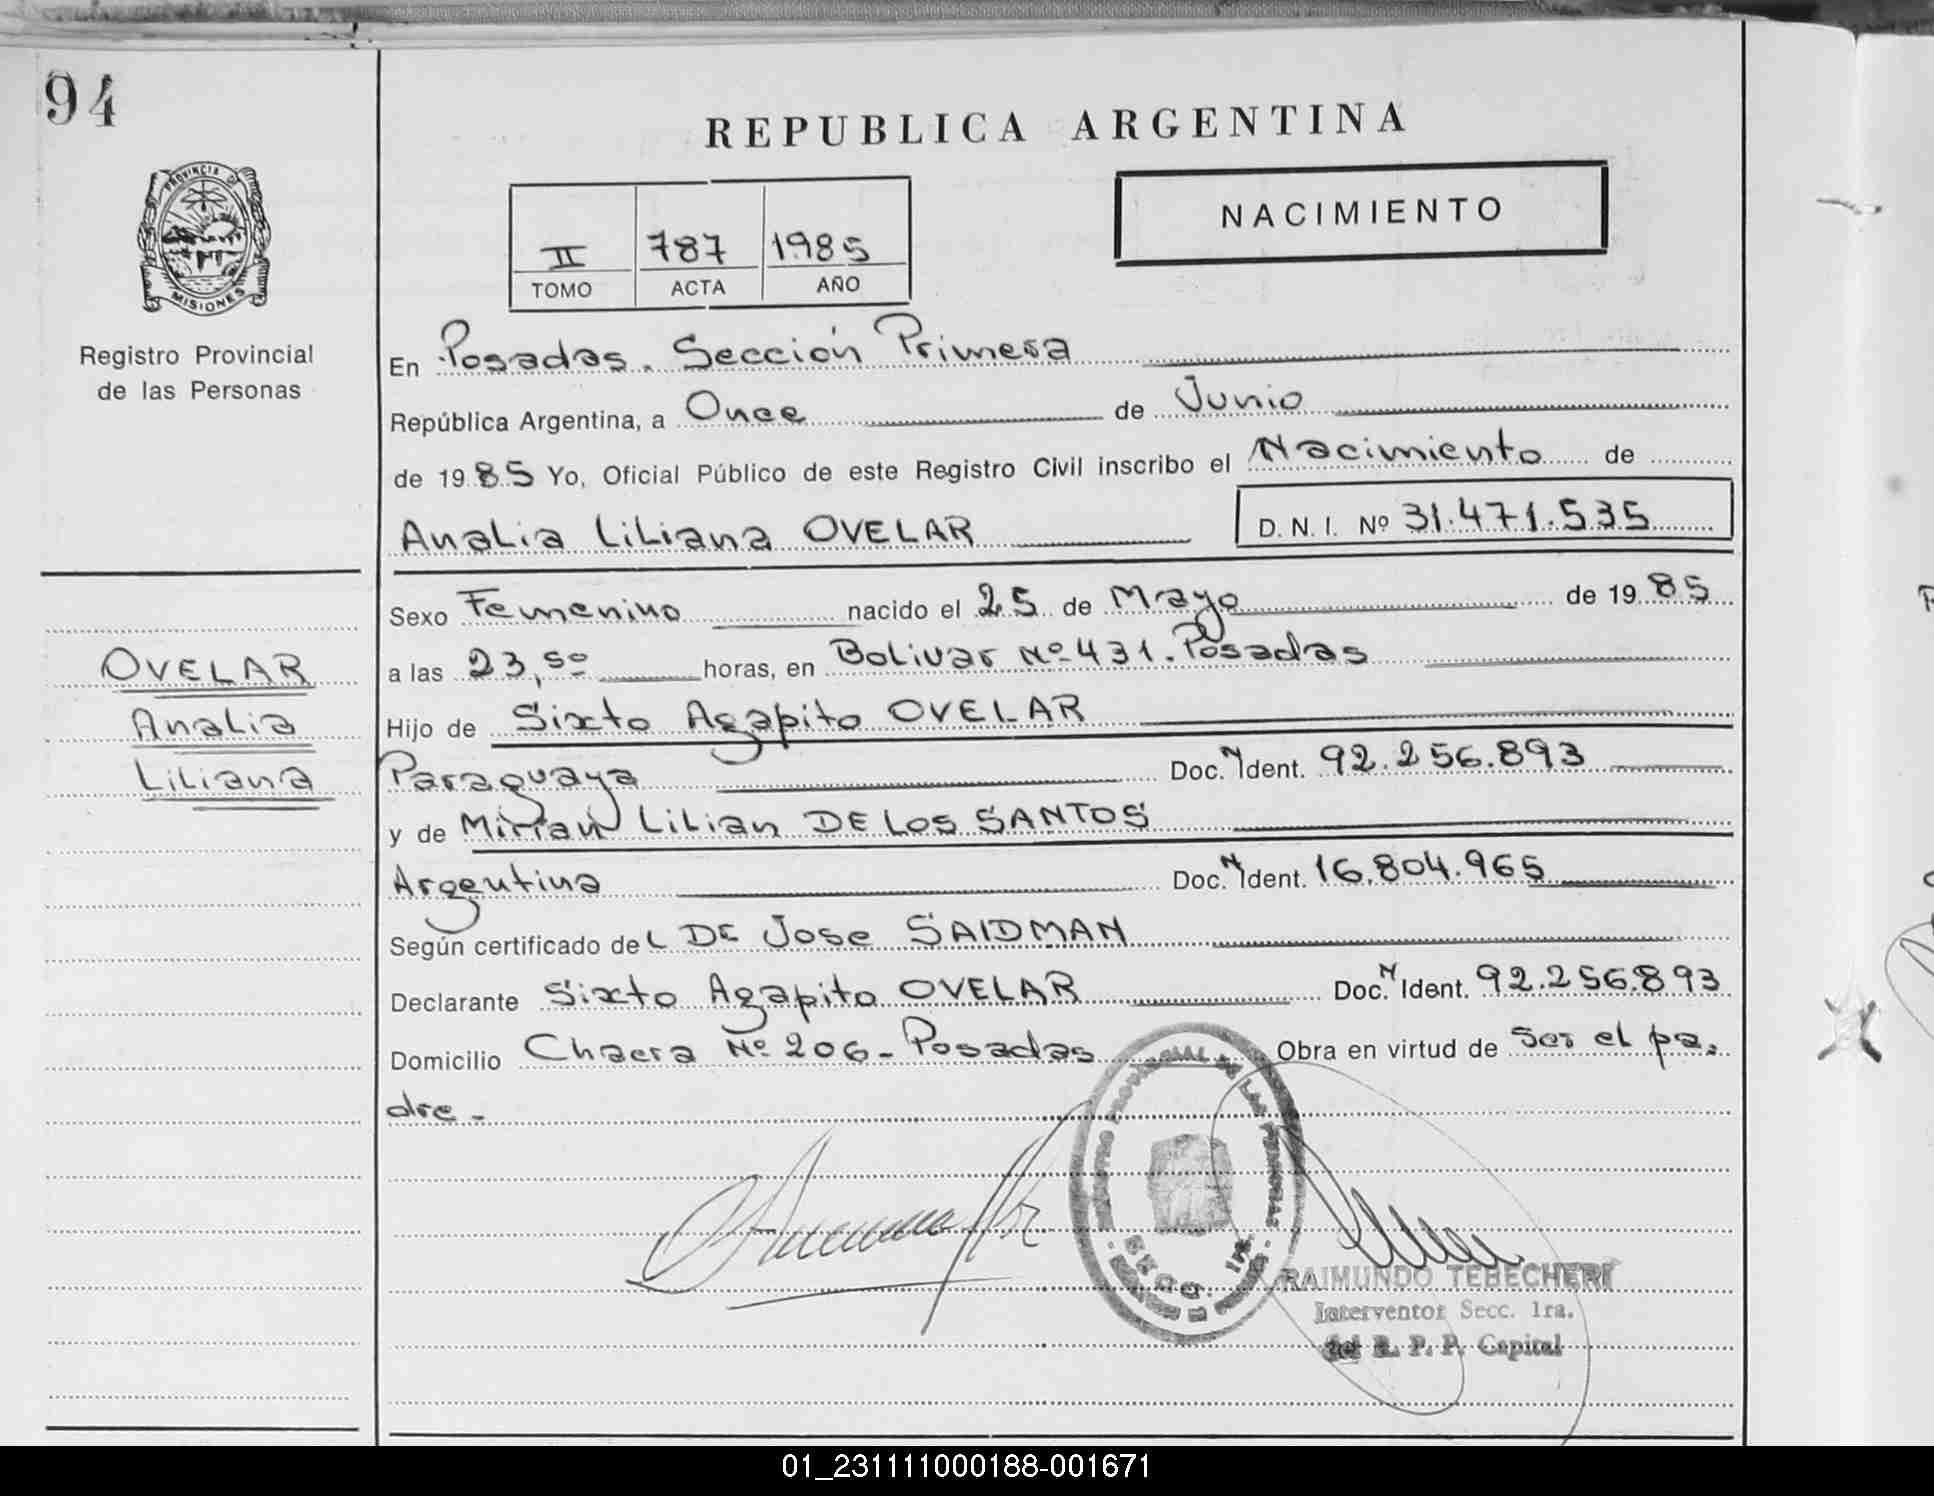 94
REPUBLICA ARGENTINA
PROVINCIA DE
MISIONES
NACIMIENTO
II 787 1985
TOMO ACTA AÑO
Registro Provincial
de las Personas
En Posadas. Sección Primera
República Argentina, a Once de Junio
de 1985 Yo, Oficial Público de este Registro Civil inscribo el Nacimiento de
Analia Liliana OVELAR D. N. I. Nº 31.471.535
Sexo Femenino nacido el 25 de Mayo de 1985
OVELAR
Analia
Liliana
a las 23,50 horas, en Bolivar Nº 431. Posadas
Hijo de Sixto Agapito OVELAR
Paraguaya Doc. N Ident. 92.256.893
y de Mirian Lilian DE LOS SANTOS
Argentina Doc. N Ident. 16.804.965
Según certificado del DE Jose SAIDMAN
Declarante Sixto Agapito OVELAR Doc. N Ident. 92.256.893
Domicilio Chacra Nº 206 - Posadas Obra en virtud de ser el pa-
dre -
PROVINCIAL DE LAS PERSONAS
SECC. 1ra.
RAIMUNDO TEBECHERI
Interventor Secc. 1ra.
del R. P. P. Capital
01_231111000188-001671